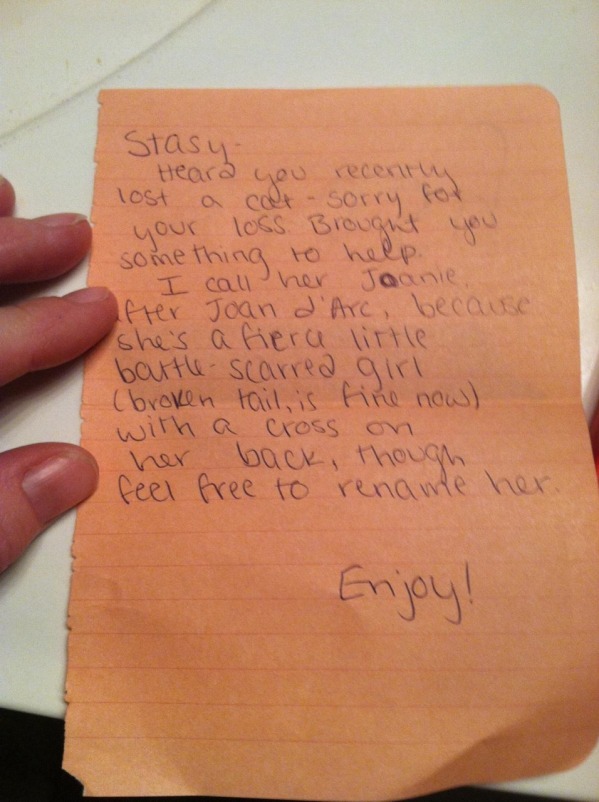 Stasy-
Heard you recently
lost a cat - sorry for
your loss. Brought you
something to help.
I call her Joanie,
after Joan d'Arc, because
she's a fierce little
battle-scarred girl
(broken tail, is fine now)
with a cross on
her back, though
feel free to rename her.
Enjoy!